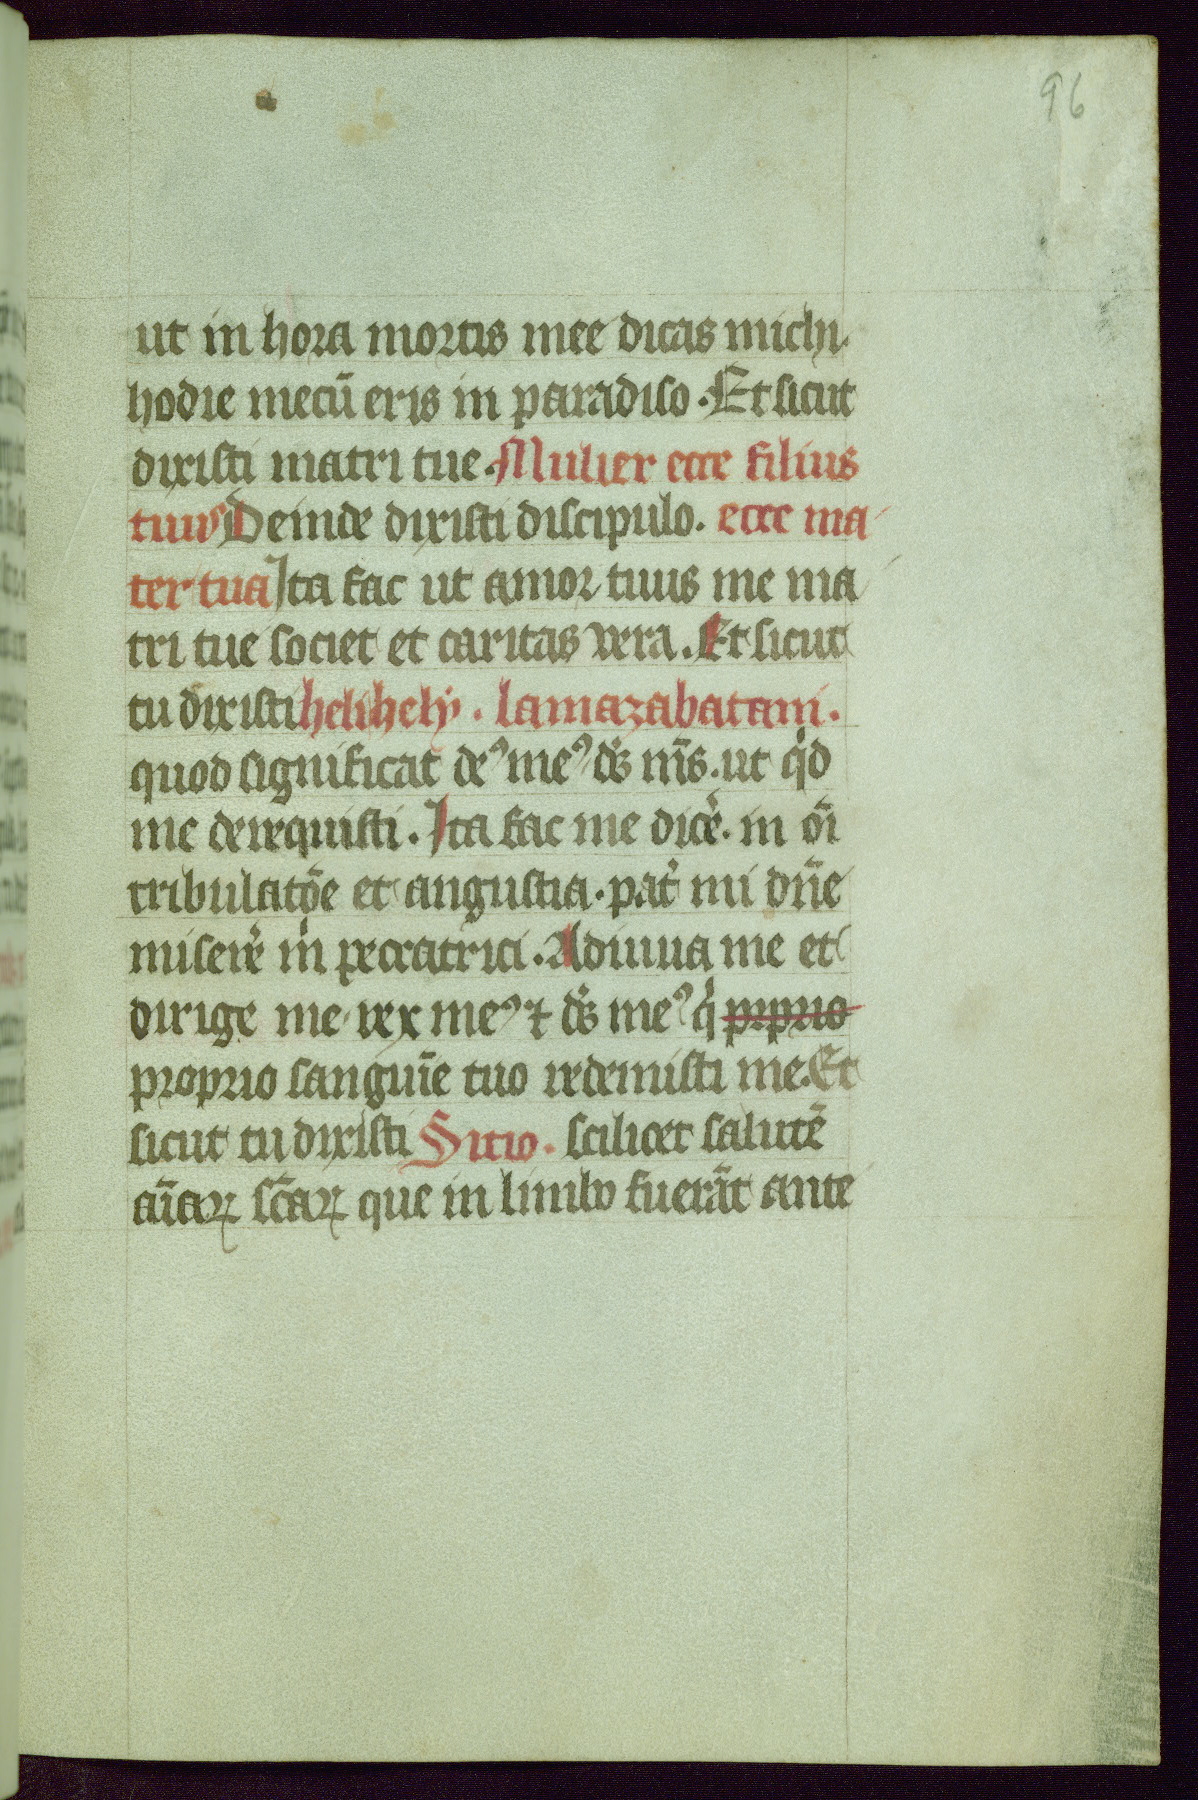 96
ut in hora mortis mee dicas michi.
hodie mecū eris in paradiso. Et sicut
dixisti matri tue. Mulier ecce filius
tuus Deinde dixisti discipulo. ecce ma
ter tua Ita fac ut amor tuus me ma
tri tue societ et caritas vera. Et sicut
tu dixisti heli hely. lamazabatani.
quod significat deꝰ meꝰ ds̄ m̄s. ut qͥd
me derequisti. Ita fac me dicē. in oī
tribulatōe et angustia. pat̄ mi dn̄e
miserē m̄ peccatrici. Adiuua me et
dirige me rex meꝰ ⁊ ds̄ meꝰ qͥ prprio
proprio sanguīe tuo redemisti me. Et
sicut tu dixisti Sitio. scilicet salutē
aīaꝝ sc̄aꝝ que in limbo fuerāt ante